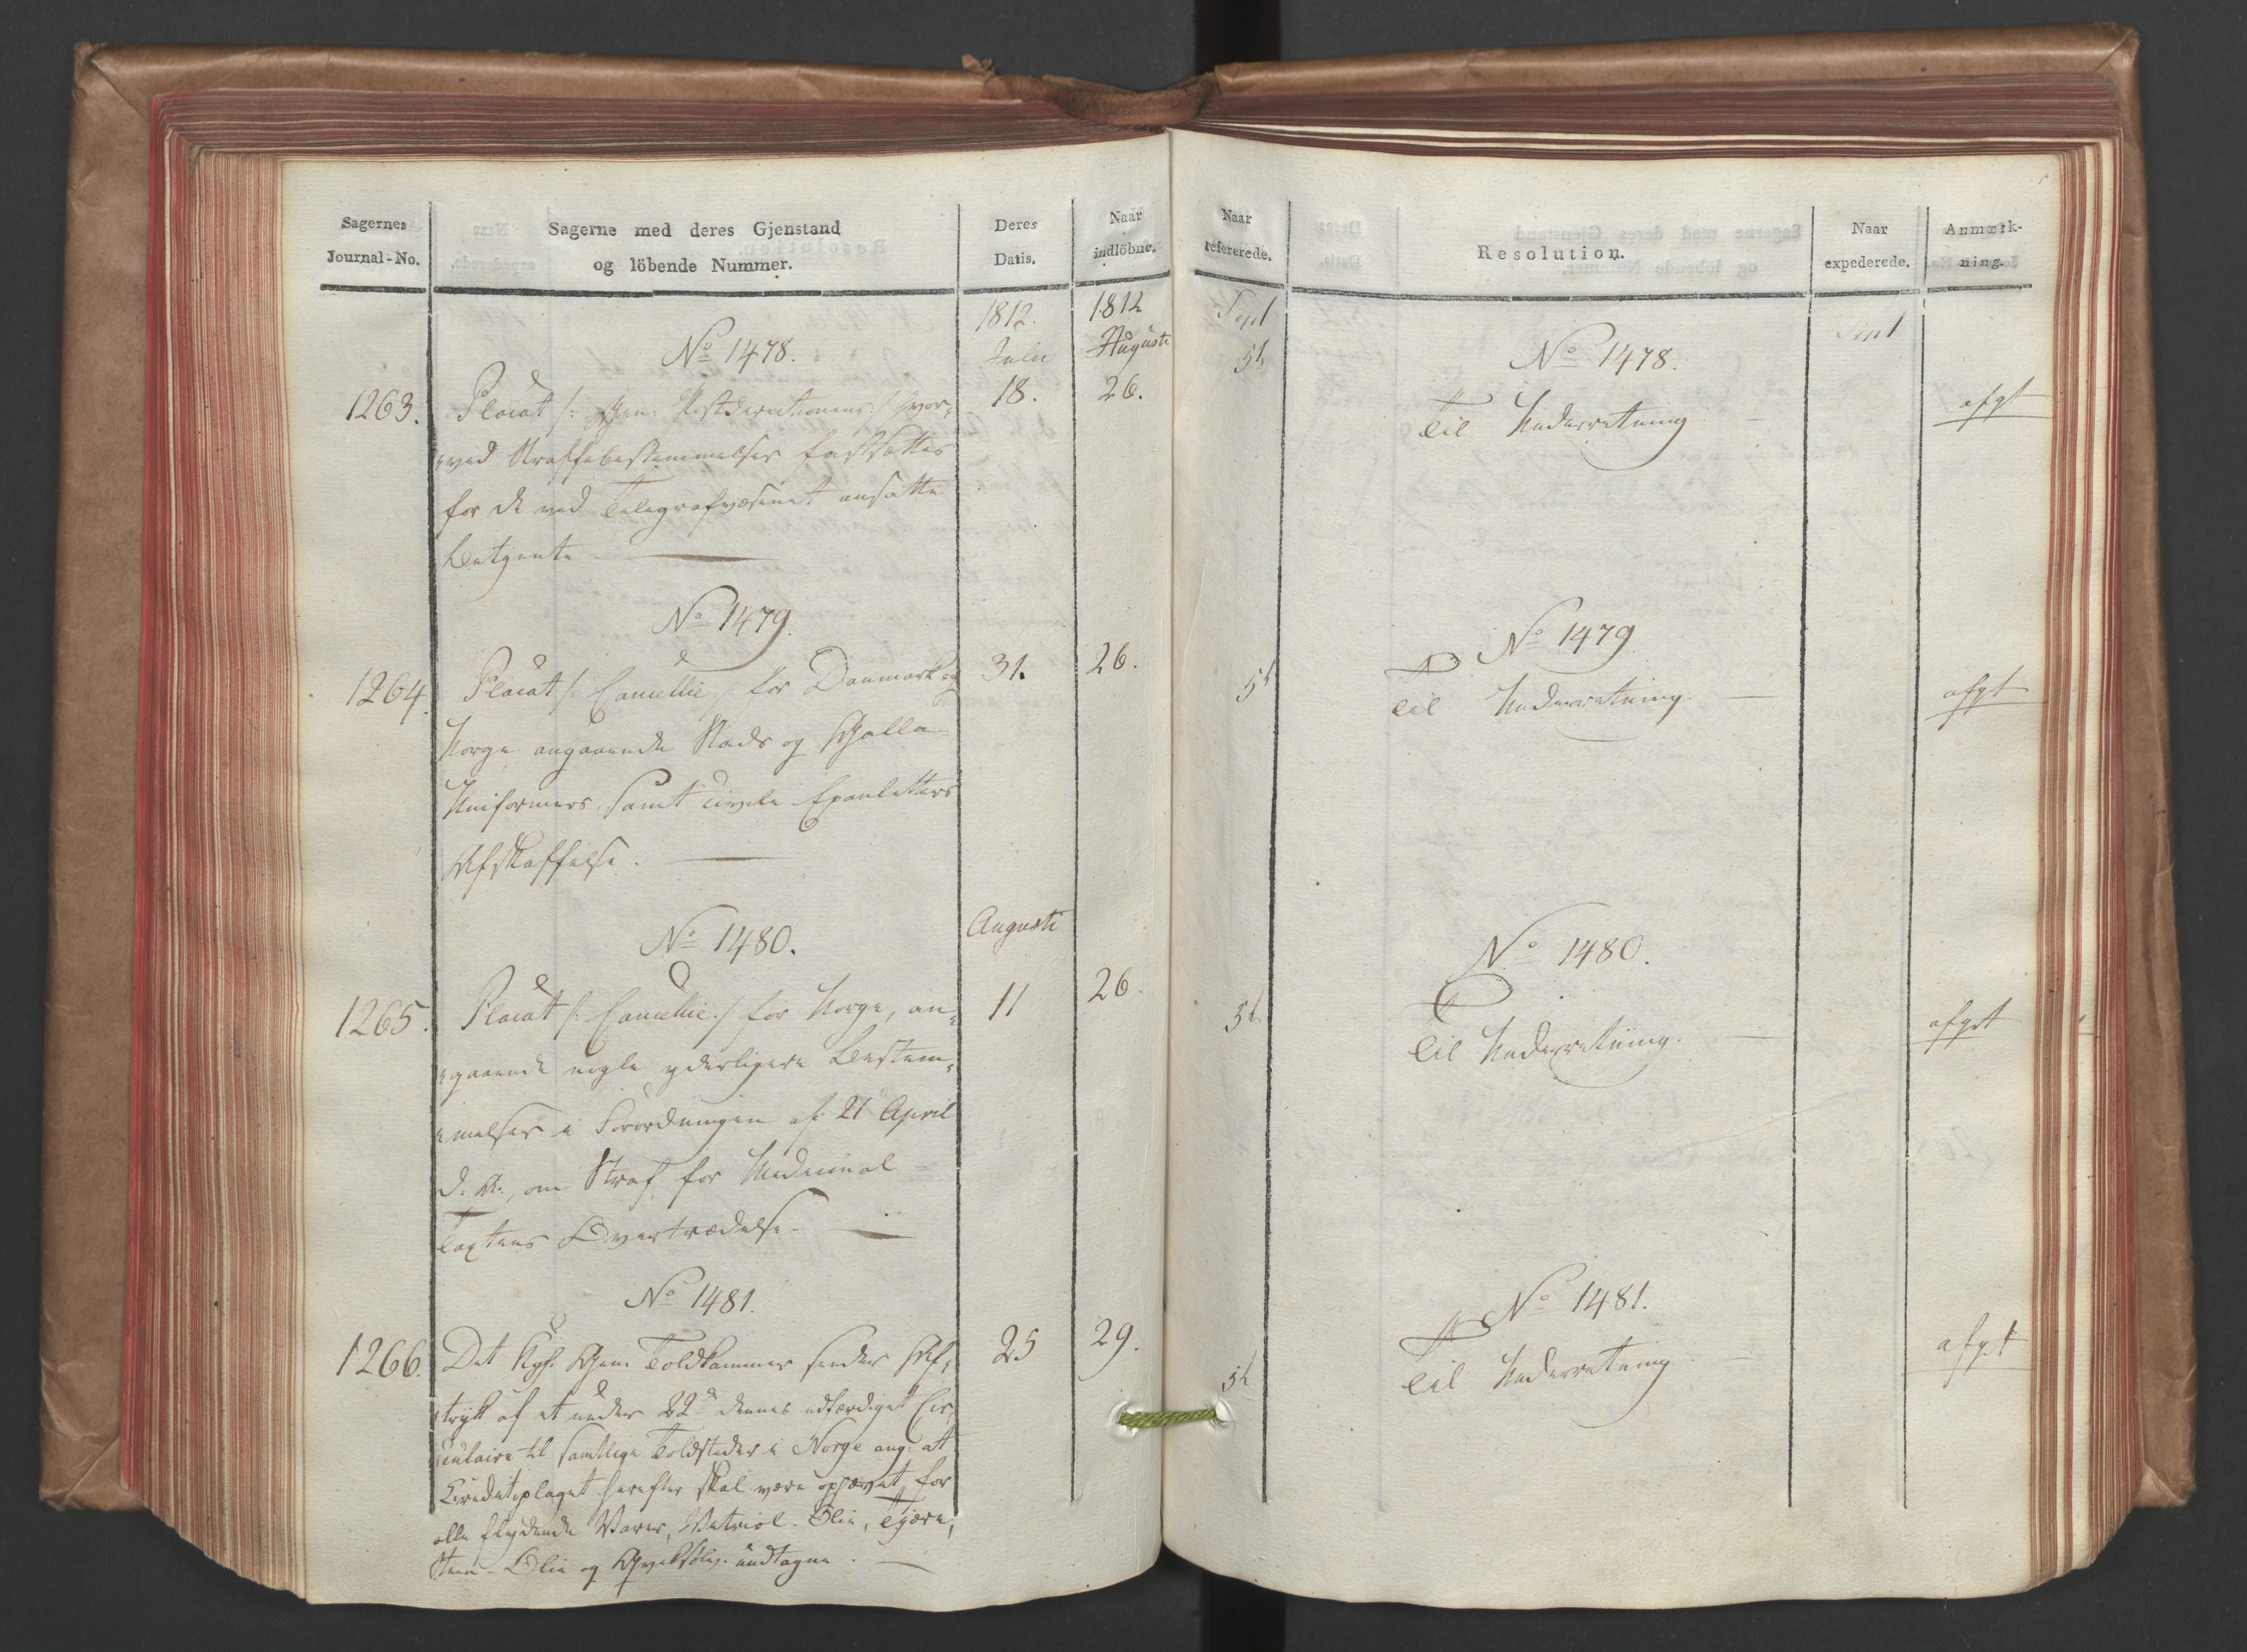 Sagernes
Journal-No.
Sagerne med deres Gjenstand
og löbende Nummer.
Deres
Datis.
Naar
indlöbne.
1812.
Julii
1812
Augusti
No 1478.
1263.
Placat /: Gen: Postdirectionens :/ hvor-
ved Straffebestemmelser fastsættes
for de ved Telegrafvæsenet ansatte
Betjente.
18.
26.
No 1479.
1264.
Placat /: Cancellie :/ for Danmark og
Norge angaaende Stads og Galla
Uniformers, samt civile Epauletters
Afskaffelse.
31.
26.
Augusti
No 1480.
1265.
Placat /: Cancellie :/ for Norge, an-
gaaende nogle yderligere Bestem-
melser i Forordningen af 21 April
d. A., om Straf for Medicinal-
Taxtens Overtrædelse.
11
26.
No 1481.
1266.
Det Kgl. Gen: Toldkammer sender Af-
tryk af et under 22d dennes udfærdiget Cir-
culaire til samtlige Toldsteder i Norge ang: at
Creditoplaget herefter skal være ophævet for
alle flydende Varer, Vitriol-Olie, Tjære,
Steen-Olie og Qviksølv undtagne.
25
29.
Naar
refererede.
Resolution.
Naar
expederede.
Anmærk-
ning.
Sept
Sept
No 1478.
5t
Til Underretning
afgt
No 1479
5t
Til Underretning.
afgt
No 1480.
5t
Til Underretning.
afgt
No 1481.
5t
Til Underretning
afgt